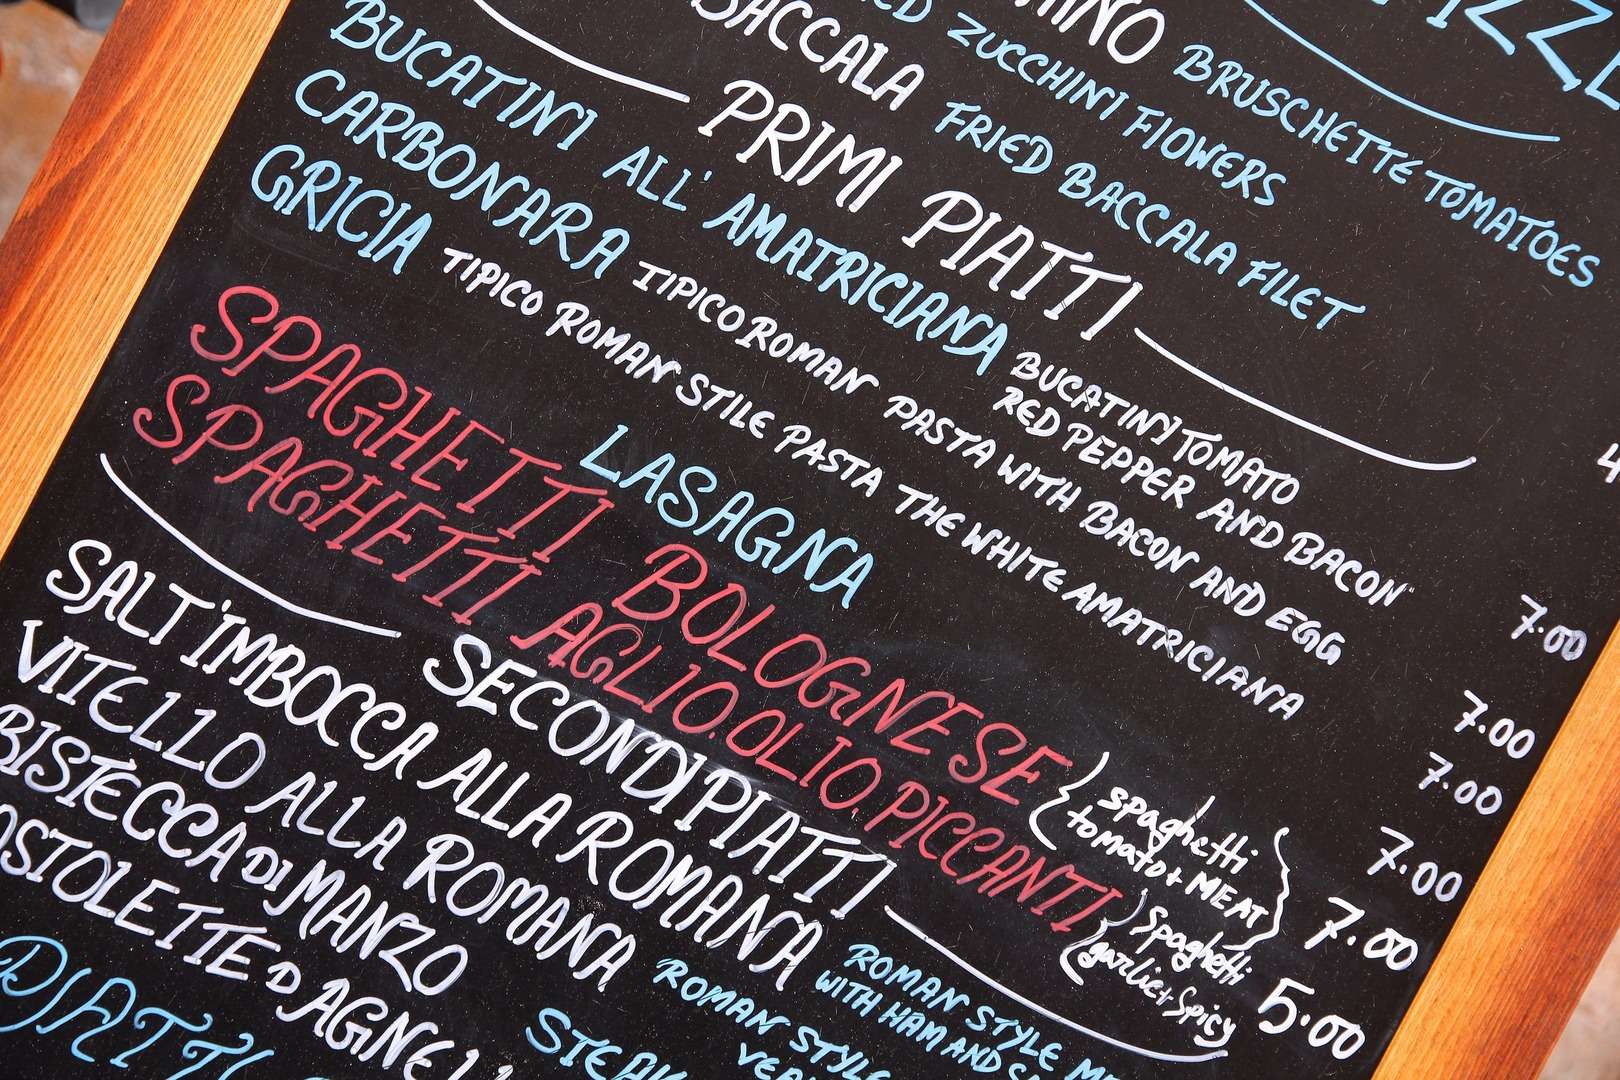 BRUSCHETTE TOMATOES
ZUCCHINI FLOWERS
BACCALA FRIED BACCALA FILET
PRIMI PIATTI
BUCATINI ALL' AMATRICIANA BUCATINI TOMATO
RED PEPPER AND BACON 7.00
CARBONARA TIPICO ROMAN PASTA WITH BACON AND EGG 7.00
GRICIA TIPICO ROMAN STILE PASTA THE WHITE AMATRICIANA 7.00
LASAGNA 7.00
SPAGHETTI BOLOGNESE spaghetti
tomato + MEAT 7.00
SPAGHETTI AGLIO.OLIO.PICCANTI spaghetti
garlic + spicy 5.00
SECONDI PIATTI
SALT'IMBOCCA ALLA ROMANA ROMAN STYLE
WITH HAM AND
VITELLO ALLA ROMANA ROMAN STYLE
BISTECCA DI MANZO